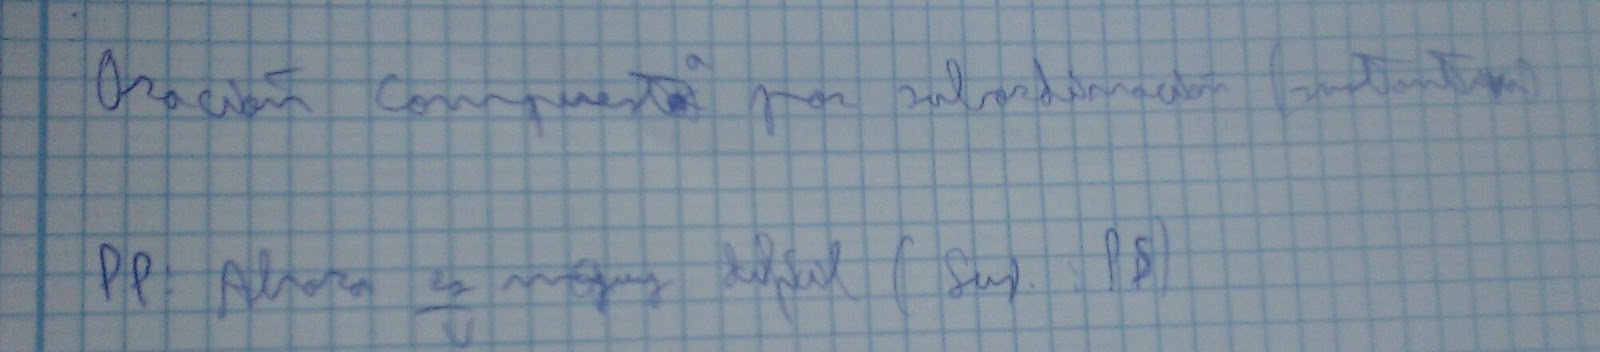 Oración compuesta por subordinación (sustantiva)
PP: Ahora es difícil (Suj. : PS)
V